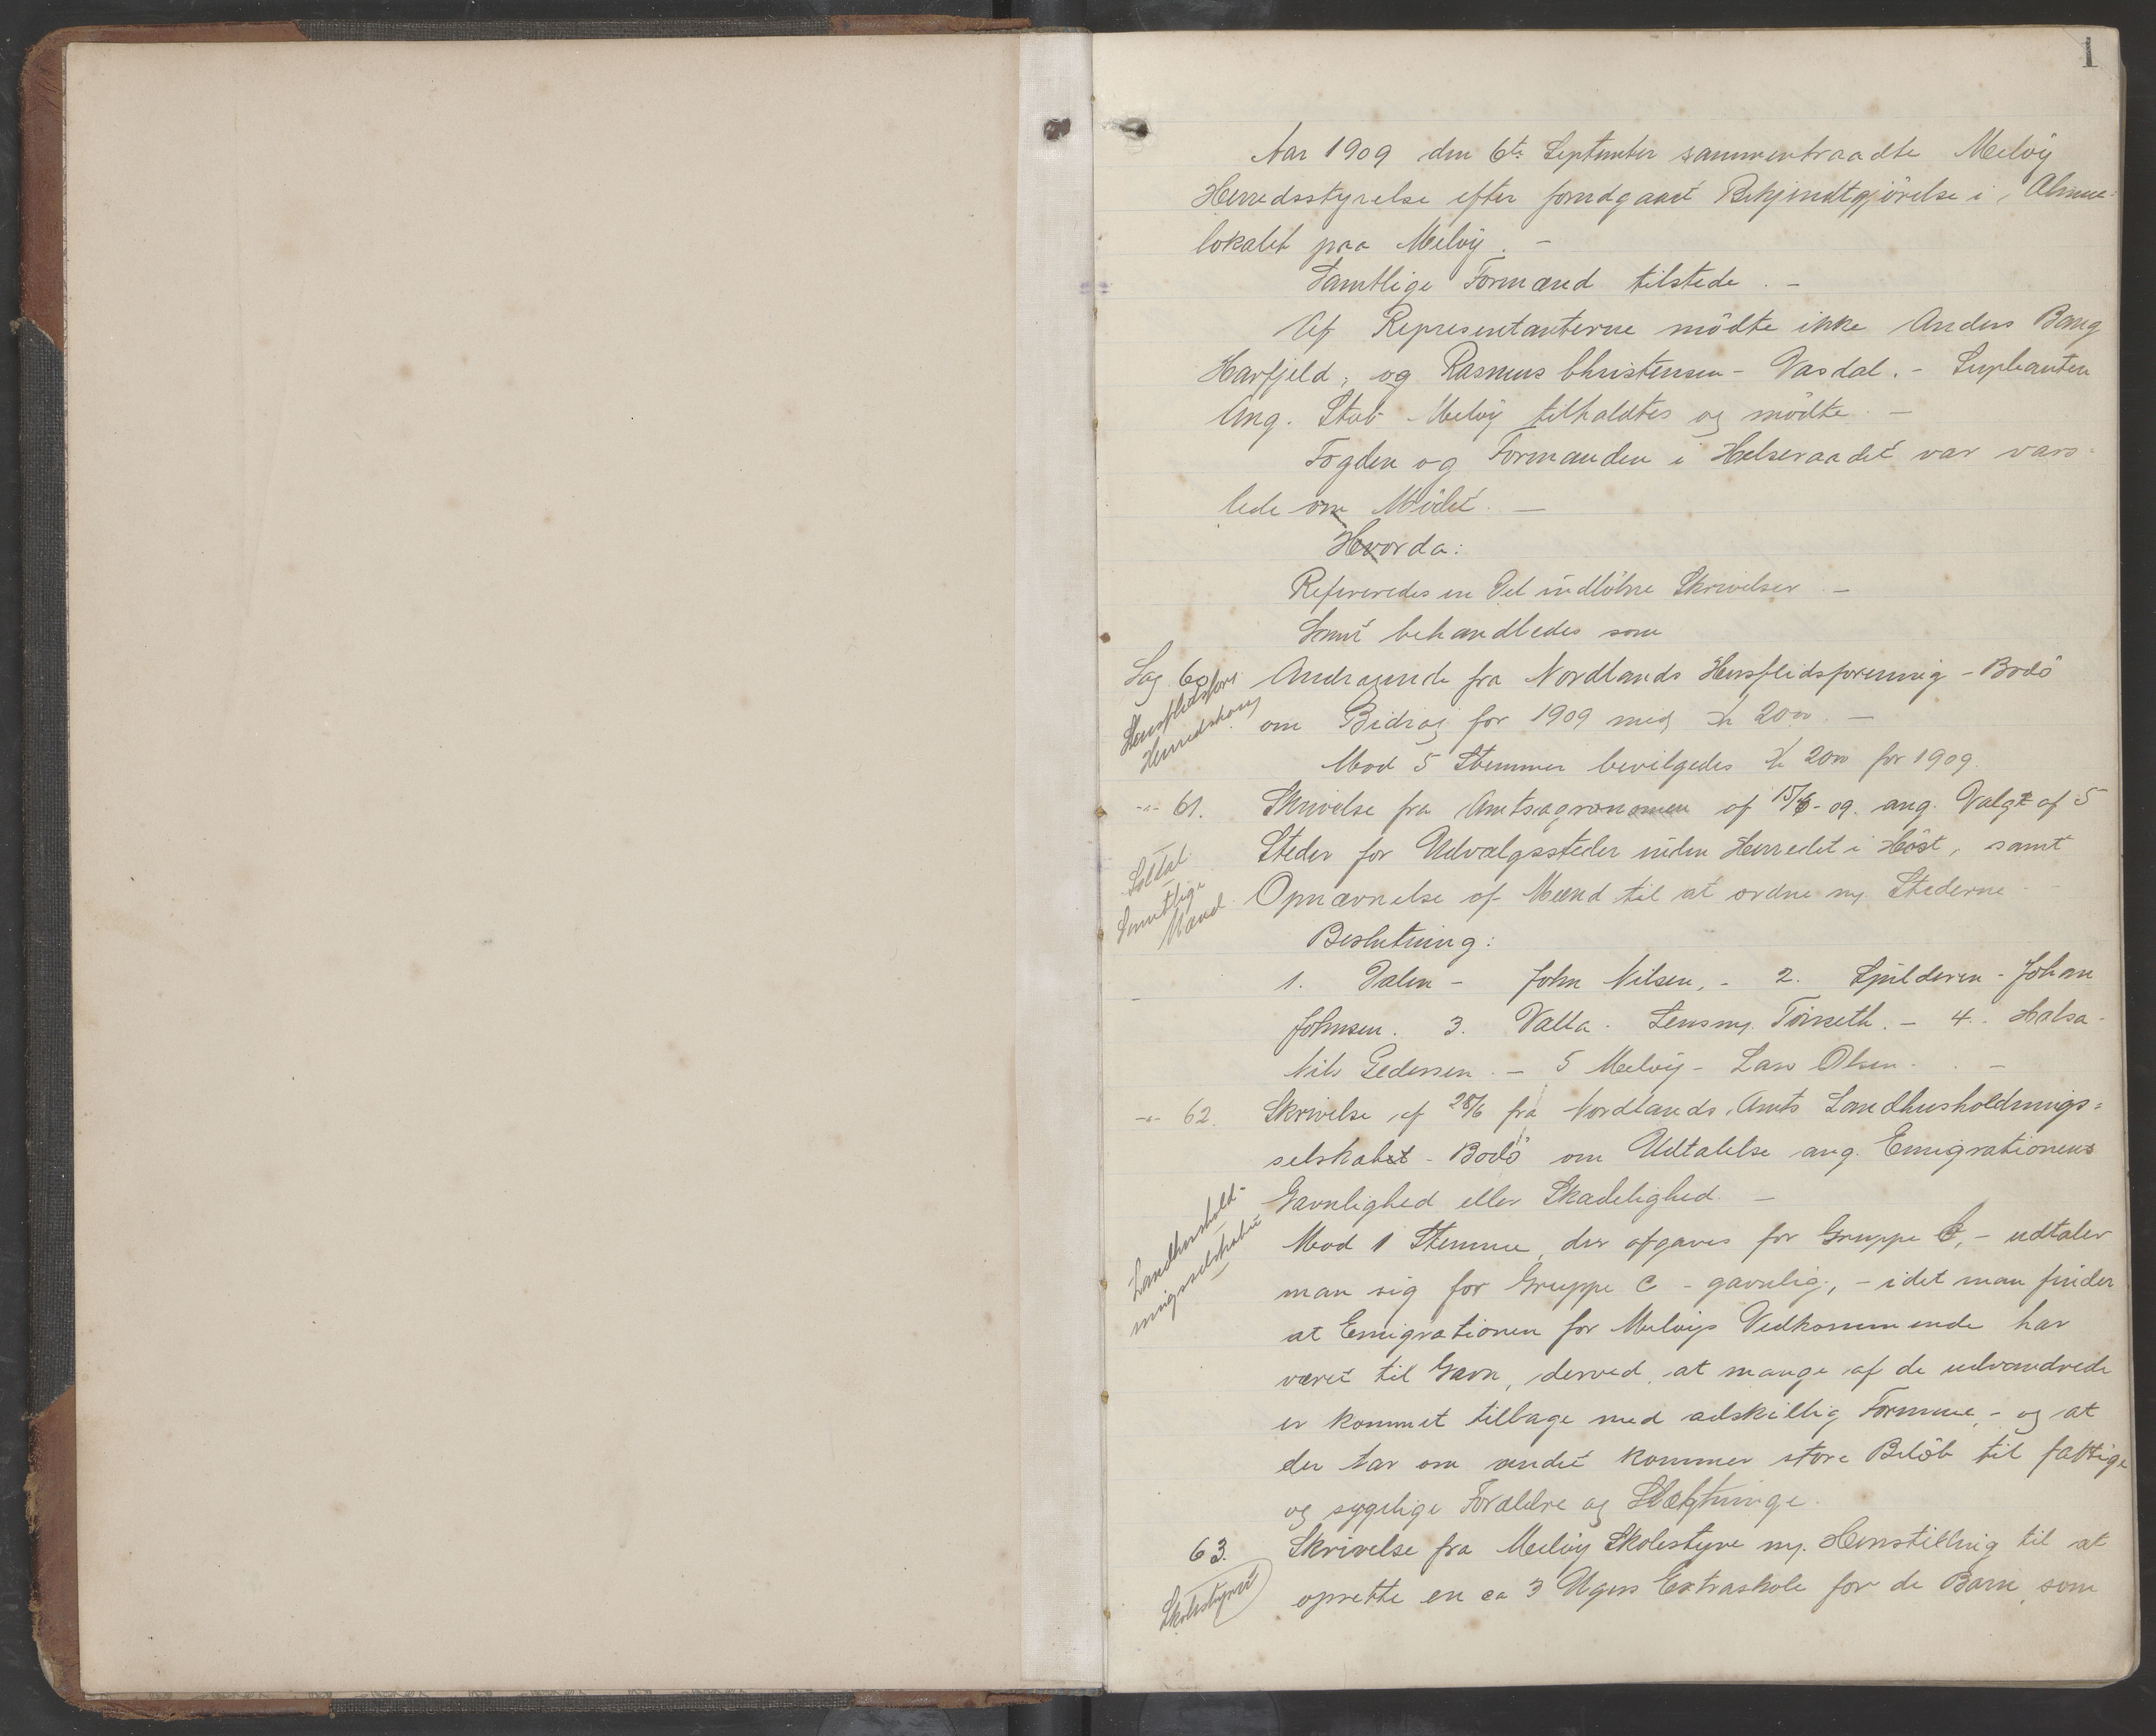 1
Aar 1909 den 6te September sammentraadte Meløy
Herredsstyrelse efter forudgaaet Bekjendtgjørelse i Almue-
lokalet paa Meløy. –
Samtlige Formænd tilstede. –
Af Representanterne mødte ikke Anders Bang
Harfjeld, og Rasmus Christensen – Vasdal. – Supleanten
Ang. Stub Meløy tilkaldtes og mødte. –
Fogden og Formanden i Helseraadet var vars-
lede om Mødet. –
Hvorda:
Refereredes en Del indløbne Skrivelser. –
Samt behandledes som
Sag 60 Andragende fra Nordlands Husflidsforening – Bodø
Husflidsfor.
Herredskas
om Bidrag for 1909 med Kr 20.00. –
Mod 5 Stemmer bevilgedes Kr 20.00 for 1909.
-"- 61. Skrivelse fra Amtsagronomen af 15/6-09. ang. Valg af 5
Steder for Udvalgssteder inden Herredet i Høst, samt
Samtlige
Mænd
Opnævnelse af Mænd til at ordne m. Stederne –
Beslutning:
1. Dalen – John Nilsen, – 2. Spilderen – Johan
Johnsen. 3. Valla – Lensm. – 4. Halsa –
Nils Pedersen. – 5 Meløy – Lars Olsen. –
-"- 62. Skrivelse af 28/6 fra Nordlands Amts Landhusholdnings-
selskabet – Bodø om Udtalelse ang. Emigrationens
Gavnlighed eller Skadelighed. –
Landhushold-
ningsselskabet
Mod 1 Stemme, der afgaves for Gruppe – udtaler
man sig for Gruppe C – gavnlig, – idet man finder
at Emigrationen for Meløys Vedkommende har
været til Gavn, derved, at mange af de udvandrede
er kommet tilbage med adskillig Formue, – og at
der Aar om andet kommer store Beløb til fattige
og sygelige Forældre og Slægtninge.
63. Skrivelse fra Meløy Skolestyre m. Henstilling til at
Skolestyret
oprette en ca 3 Ugers Extraskole for de Barn, som